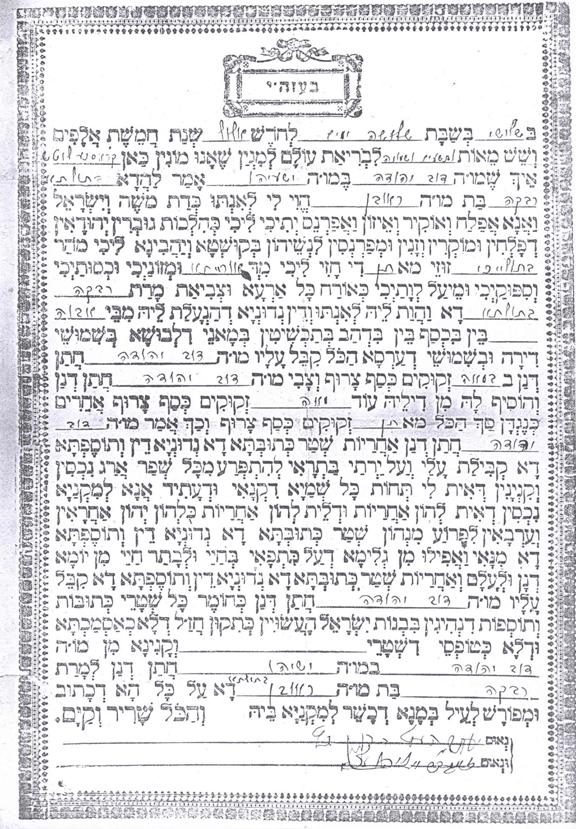 בעזה״י
בשלישי בשבת שלשה ימים לחדש אלול שנת חמשת אלפים
ושש מאות ושמונה לבריאת עולם למנין שאנו מונין כאן
איך שמו״ה דוב יהודה במו״ה ישעיהו אמר להדא בתולתא
רבקה בת מו״ה ראובן הוי לי לאנתו כדת משה וישראל
ואנא אפלח ואוקיר ואיזון ואפרנס יתיכי ליכי כהלכות גוברין יהודאין
דפלחין ומוקרין וזנין ומפרנסין לנשיהון בקושטא ויהבינא ליכי מהרי
בתוליכי זוזי מאתן די חזי ליכי מדאורייתא ומזוניכי וכסותיכי
וספוקיכי ומיעל לותיכי כאורח כל ארעא וצביאת מרת רבקה
בתולתא דא והות ליה לאנתו ודין נדוניא דהנעלת ליה מבי אבוה
בין בכסף בין בדהב בתכשיטין במאני דלבושא בשמושי
דירה ובשמושי דערסא הכל קבל עליו מו״ה דוב יהודה חתן
דנן ב במאה זקוקים כסף צרוף וצבי מו״ה דוב יהודה חתן דנן
והוסיף לה מן דיליה עוד מאה זקוקים כסף צרוף אחרים
כנגדן סך הכל מאתן זקוקים כסף צרוף וכך אמר מו״ה דוב
יהודה חתן דנן אחריות שטר כתובתא דא נדוניא דין ותוספתא
דא קבילת עלי ועל ירתי בתראי להתפרע מכל שפר ארג נכסין
וקנינין דאית לי תחות כל שמיא דקנאי ודעתיד אנא למקניא
נכסין דאית להון אחריות ודלית להון אחריות כלהון יהון אחראין
וערבאין לפרוע מנהון שטר כתובתא דא נדוניא דין ותוספתא
דא מנאי ואפילו מן גלימא דעל כתפאי בחיי ולבתר חיי מן יומא
דנן ולעלם ואחריות שטר כתובתא דא נדוניא דין ותוספתא דא קבל
עליו מו״ה דוב יהודה חתן דנן כחומר כל שטרי כתובות
ותוספות דנהיגין בבנות ישראל העשויין כתקון חז״ל דלא כאסמכתא
ודלא כטופסי דשטרי וקנינא מן מו״ה
דוב יהודה במו״ה ישעיהו חתן דנן למרת
רבקה בת מו״ה ראובן בתולתא דא על כל הא דכתוב
ומפורש לעיל במנא דכשר למקניא ביה והכל שריר וקים.
נאום
ונאום